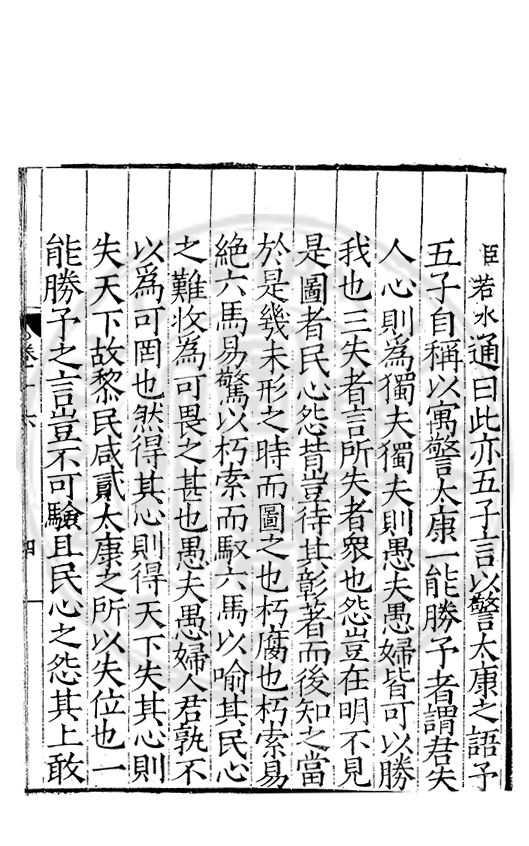 臣若水通曰此亦五子言以警太康之語予
五子自稱以寓警太康一能勝予者謂君失
人心則為獨夫獨夫則愚夫愚婦皆可以勝
我也三失者言所失者衆也怨豈在明不見
是圖者民心怨背豈待其彰著而後知之當
於是幾未形之時而圖之也朽腐也朽索易
絶六馬易驚以朽索而馭六馬以喻其民心
之難收為可畏之甚也愚夫愚婦人君孰不
以為可罔也然得其心則得天下失其心則
失天下故黎民咸貳太康之所以失位也一
能勝予之言豈不可驗且民心之怨其上敢
卷十六
四